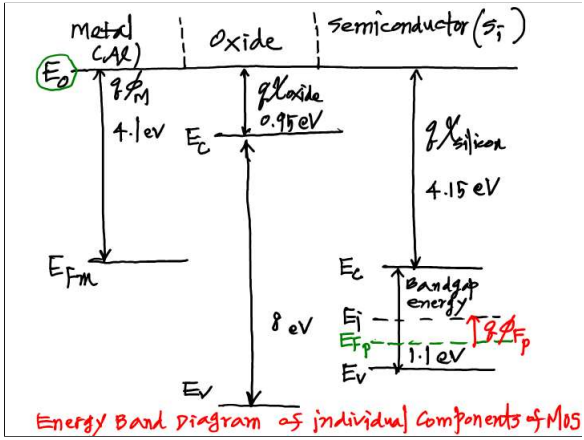 Metal
(Al)
Oxide
Semiconductor (Si)
E₀
qφ_M
4.1eV
qχ_oxide
0.95eV
E_C
qχ_silicon
4.15 eV
E_Fm
E_C
Bandgap
energy
8 eV
E_i
qφ_Fp
E_Fp
1.1 eV
E_V
E_V
Energy Band Diagram of individual Components of MOS